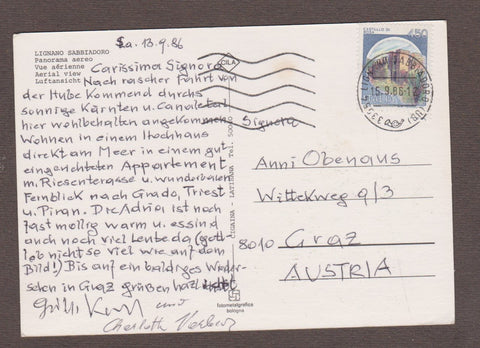 LIGNANO SABBIADORO
Panorama aereo
Vue aérienne
Aerial view
Luftansicht
Sa. 13.9.86
Carissima Signora
Nach rascher Fahrt von
der Hube kommend durchs
sonnige Kärnten u. Canaletal
hier wohlbehalten angekommen
Wohnen in einem Hochhaus
direkt am Meer in einem gut
eingerichteten Appartement
m. Riesenterasse u. wunderbaren
Fernblick nach Grado, Triest
u. Piran. Die Adria ist noch
fast mollig warm u. es sind
auch noch viel Leute da (gott-
lob nicht so viel wie auf dem
Bild!) Bis auf ein baldiges Wieder-
sehen in Graz grüßen
und
CILA
CIGAINA - LATISANA Tel.
fotometalgrafica
bologna
450
LIGNANO SABBIADORO (UD)
15.9.86
Signora
Anni Obenaus
Wittekweg 9/3
8010 Graz
AUSTRIA